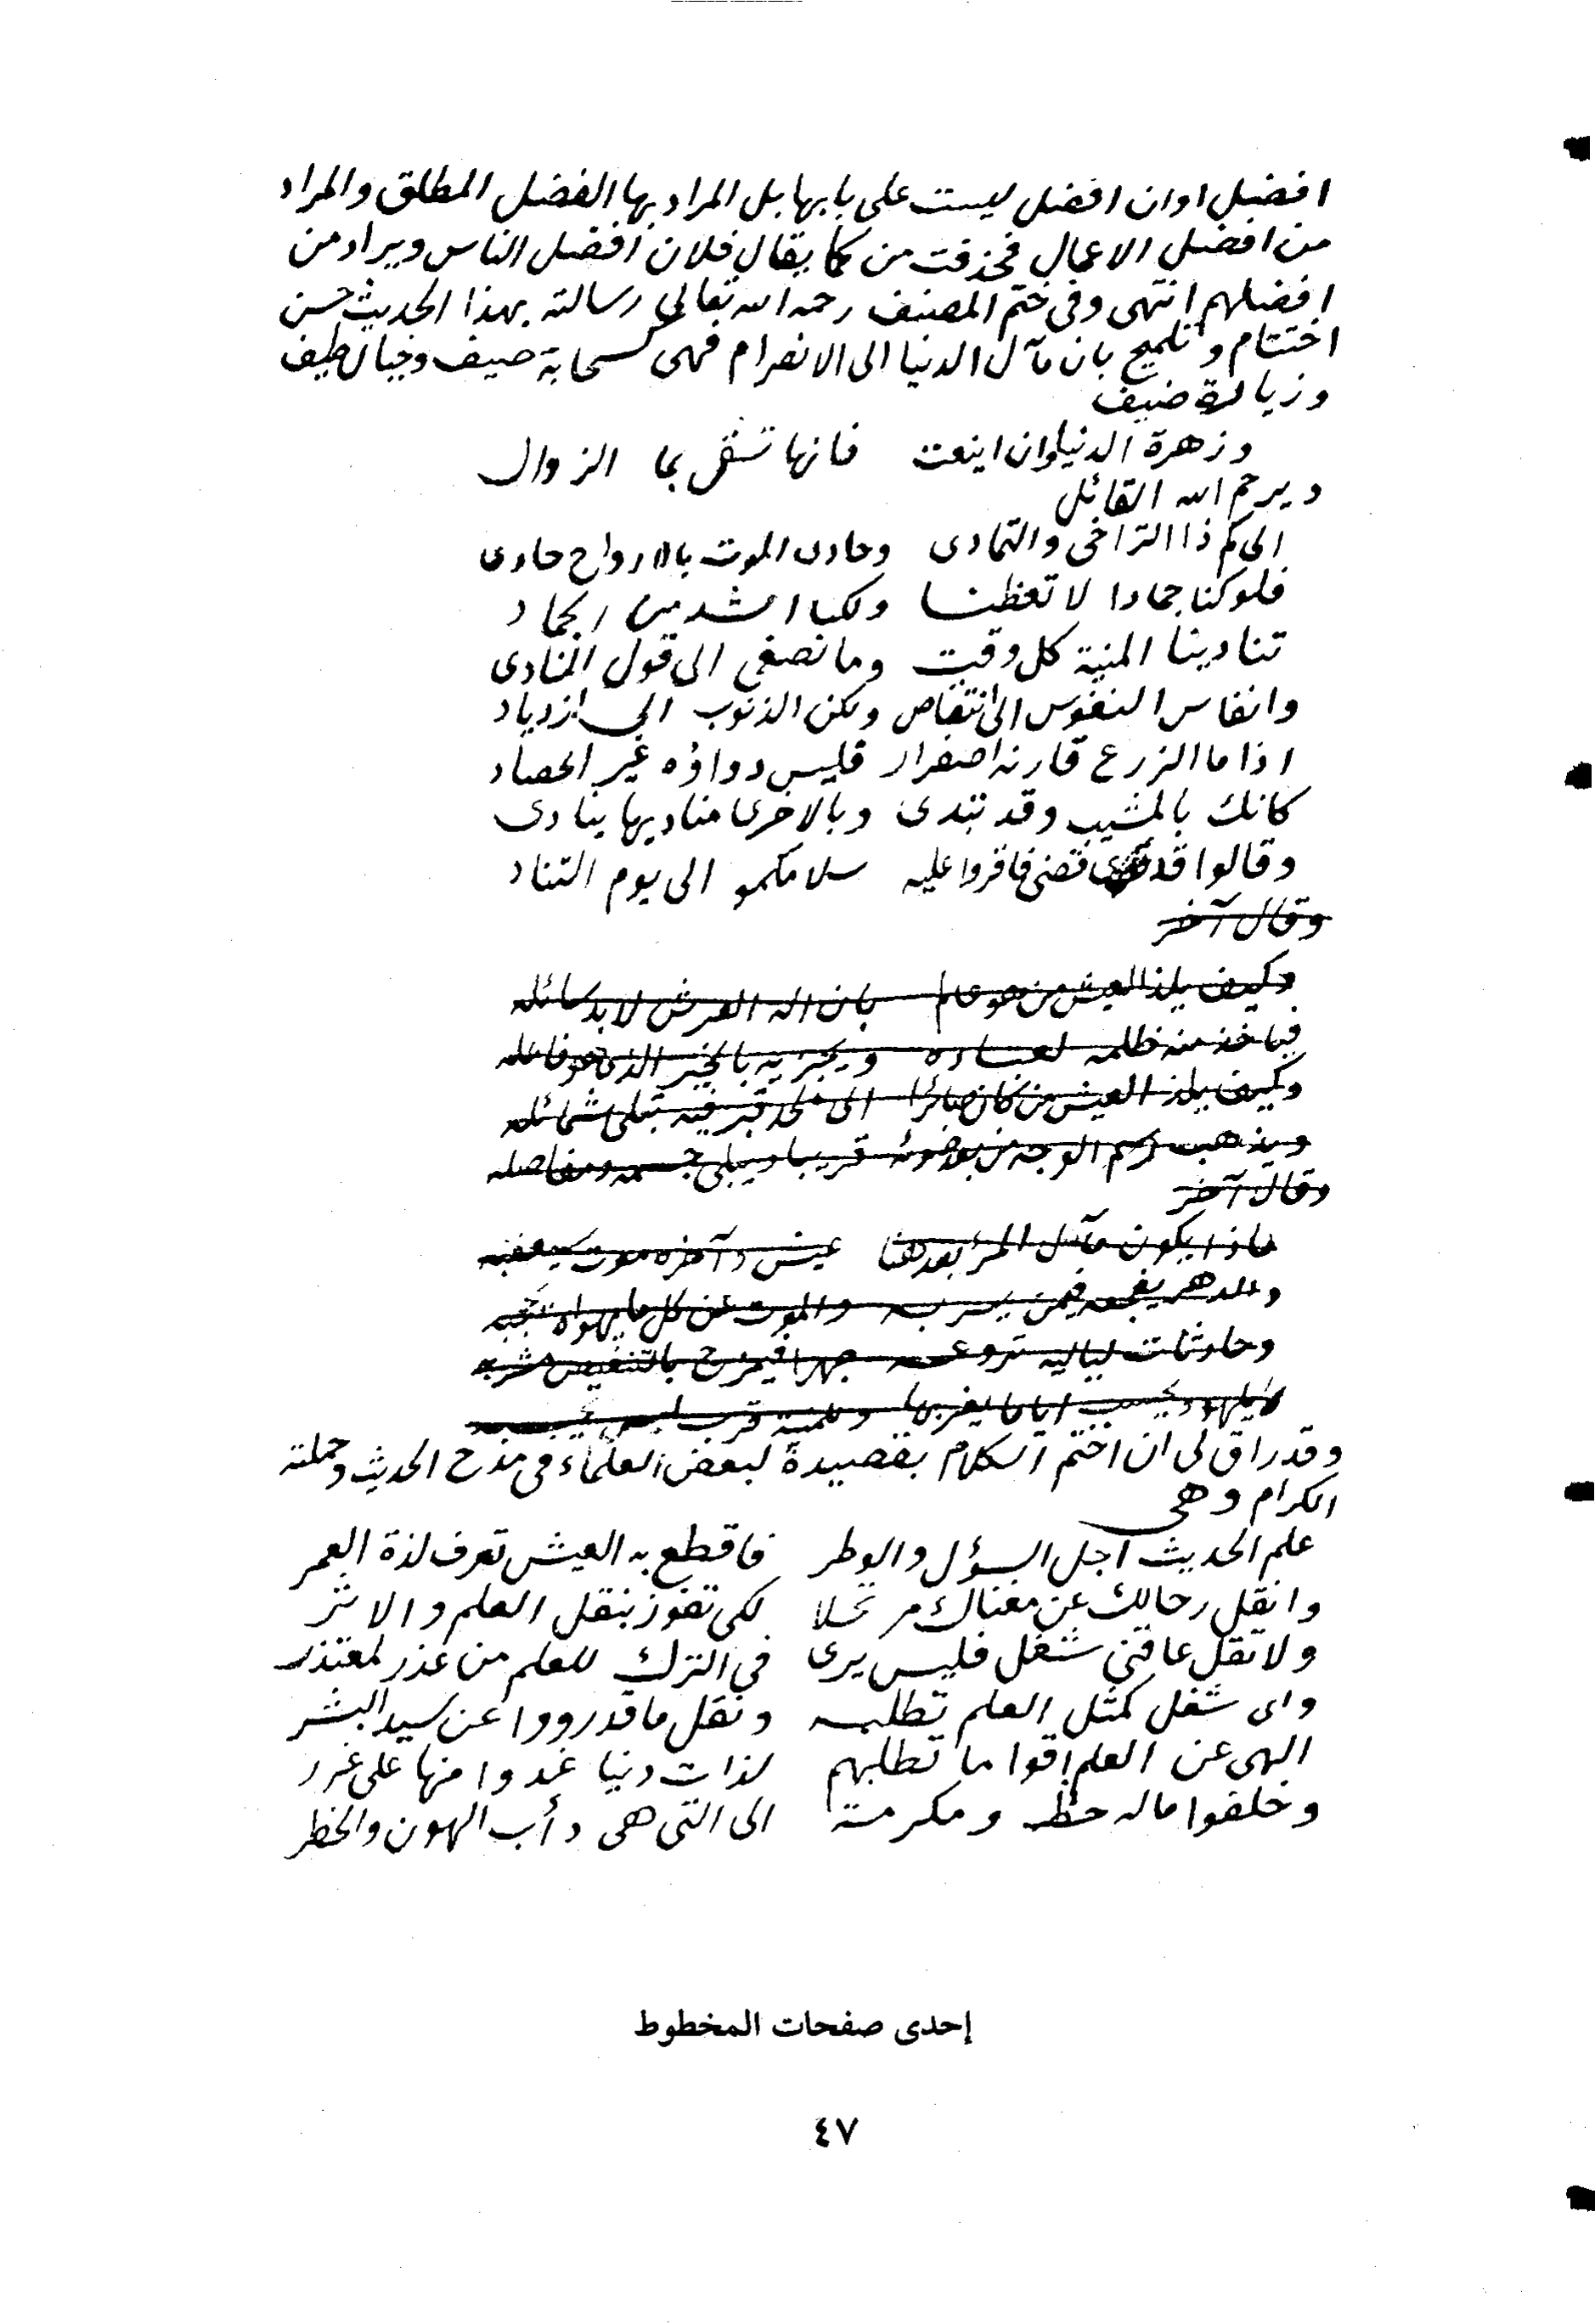 افضل او ان افضل ليست على بابها بل المراد بها الفضل المطلق والمراد
من افضل الاعمال فحذفت من كما يقال فلان افضل الناس ويراد من
افضلهم انتهى وفى ختم المصنف رحمه الله تعالى رسالته بهذا الحديث حسن
اختتام وتلميح بان مآل الدنيا الى الانصرام فهى كسحابة صيف وخيال طيف
وزيارة ضيف
وزهرة الدنيا وان اينعت فانها تسقى بما الزوال
ويرحم الله القائل
الى كم ذا التراخى والتمادى وحادى الموت بالارواح حادى
فلو كنا جمادا لاتعظنا ولكنا اشد من الجماد
تنادينا المنية كل وقت وما نصغى الى قول المنادى
وانفاس النفوس الى انتقاص ولكن الذنوب الى ازدياد
اذا ما الزرع قارنه اصفرار فليس دواؤه غير الحصاد
كانك بالمشيب وقد تبدى وبالاخرى مناديها ينادى
وقالوا قد قضى فاقروا عليه سلامكمو الى يوم التناد
وقال آخر
وكيف يلذ العيش من هو عالم بان اله العرش لابد سائله
فياخذ منه ظلمه لعباده ويجزيه بالخير الذى هو فاعله
وكيف يلذ العيش من كان صائرا الى لحد قبر فيه تبلى شمائله
ويذهب رسم الوجه من بعد ضوئه قريبا ويبلى جسمه ومفاصله
وقال آخر
ماذا يكون مآل المرء بعد هنا عيش وآخره موت سيعقبه
والدهر يفجعه فيمن يسر به والموت عن كل ما يهواه يحجبه
وحادثات لياليه تروعه جهرا فيمزج بالتنغيص مشربه
يلهو ويحسب اياما يغر بها وللمنية قرب ليس يحسبه
وقد راق لى ان اختم الكلام بقصيدة لبعض العلماء فى مدح الحديث وحملته
الكرام وهى
علم الحديث اجل السؤل والوطر فاقطع به العيش تعرف لذة العمر
وانقل رحالك عن مغناك مرتحلا لكى تفوز بنقل العلم والاثر
ولا تقل عاقنى شغل فليس يرى فى الترك للعلم من عذر لمعتذر
واى شغل كمثل العلم تطلبه ونقل ما قد رووا عن سيد البشر
الهى عن العلم اقواما تطلبهم لذات دنيا غدوا منها على غرر
وخلفوا ماله حظ ومكرمة الى التى هى دأب الهون والخطر
إحدى صفحات المخطوط
٤٧